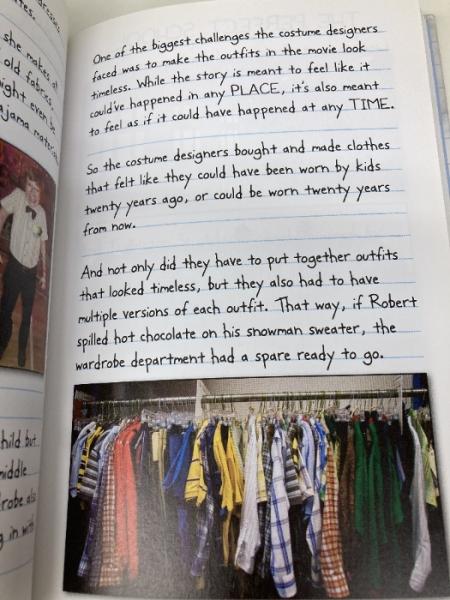 dresses
ates.
she makes at
old fabrics.
ight even be
ajama material
hild but
middle
robe also
g in with
One of the biggest challenges the costume designers
faced was to make the outfits in the movie look
timeless. While the story is meant to feel like it
could've happened in any PLACE, it's also meant
to feel as if it could have happened at any TIME.
So the costume designers bought and made clothes
that felt like they could have been worn by kids
twenty years ago, or could be worn twenty years
from now.
And not only did they have to put together outfits
that looked timeless, but they also had to have
multiple versions of each outfit. That way, if Robert
spilled hot chocolate on his snowman sweater, the
wardrobe department had a spare ready to go.